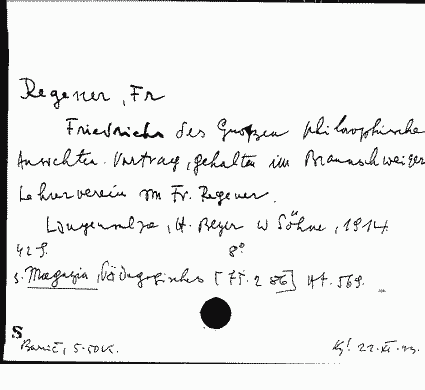 Regener, Fr
Friedrichs des Großen philosophische
Ansichten. Vortrag, gehalten im Braunschweiger
Lehrerverein von Fr. Regener.
Langensalza, H. Beyer u Söhne, 1914
42 S. 8°
s. Magazin, Pädagogisches Hft. 569.
S